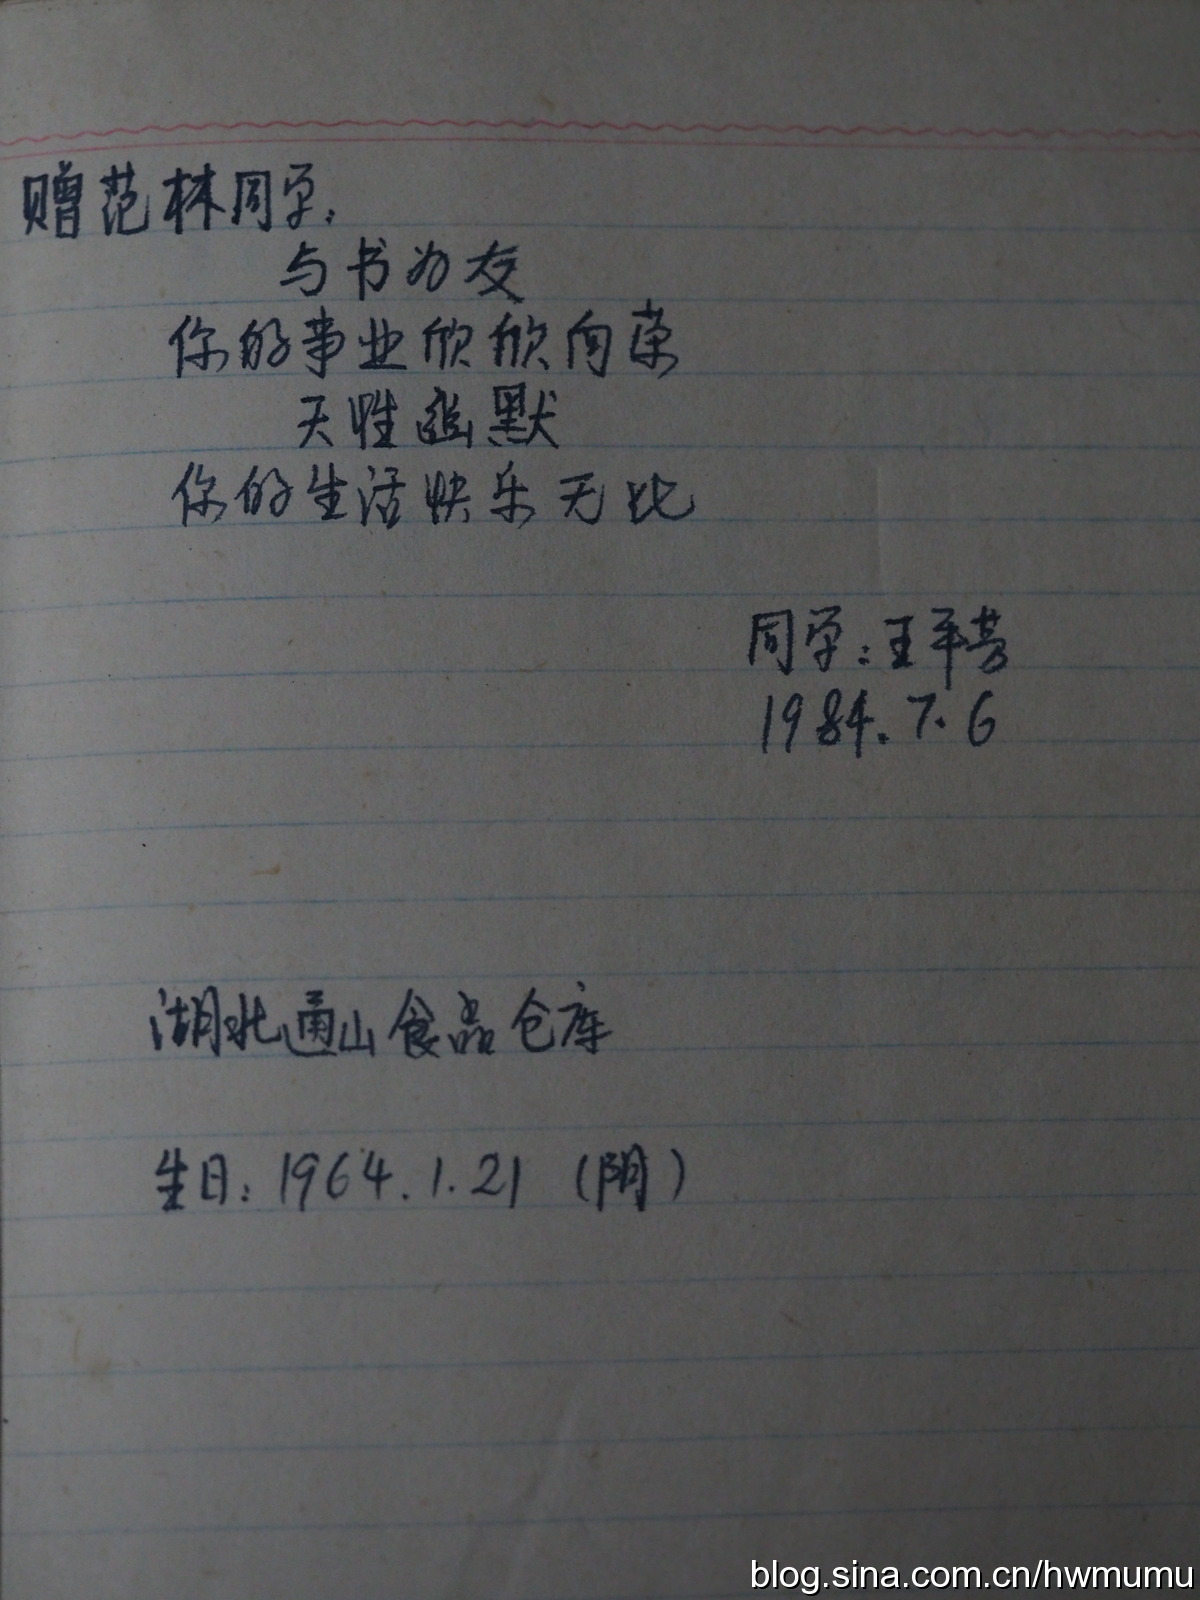 赠范林同学:
与书为友
你的事业欣欣向荣
天性幽默
你的生活快乐无比
同学:王平芳
1984.7.6
湖北通山食品仓库
生日:1964.1.21 (阴)
blog.sina.com.cn/hwmumu